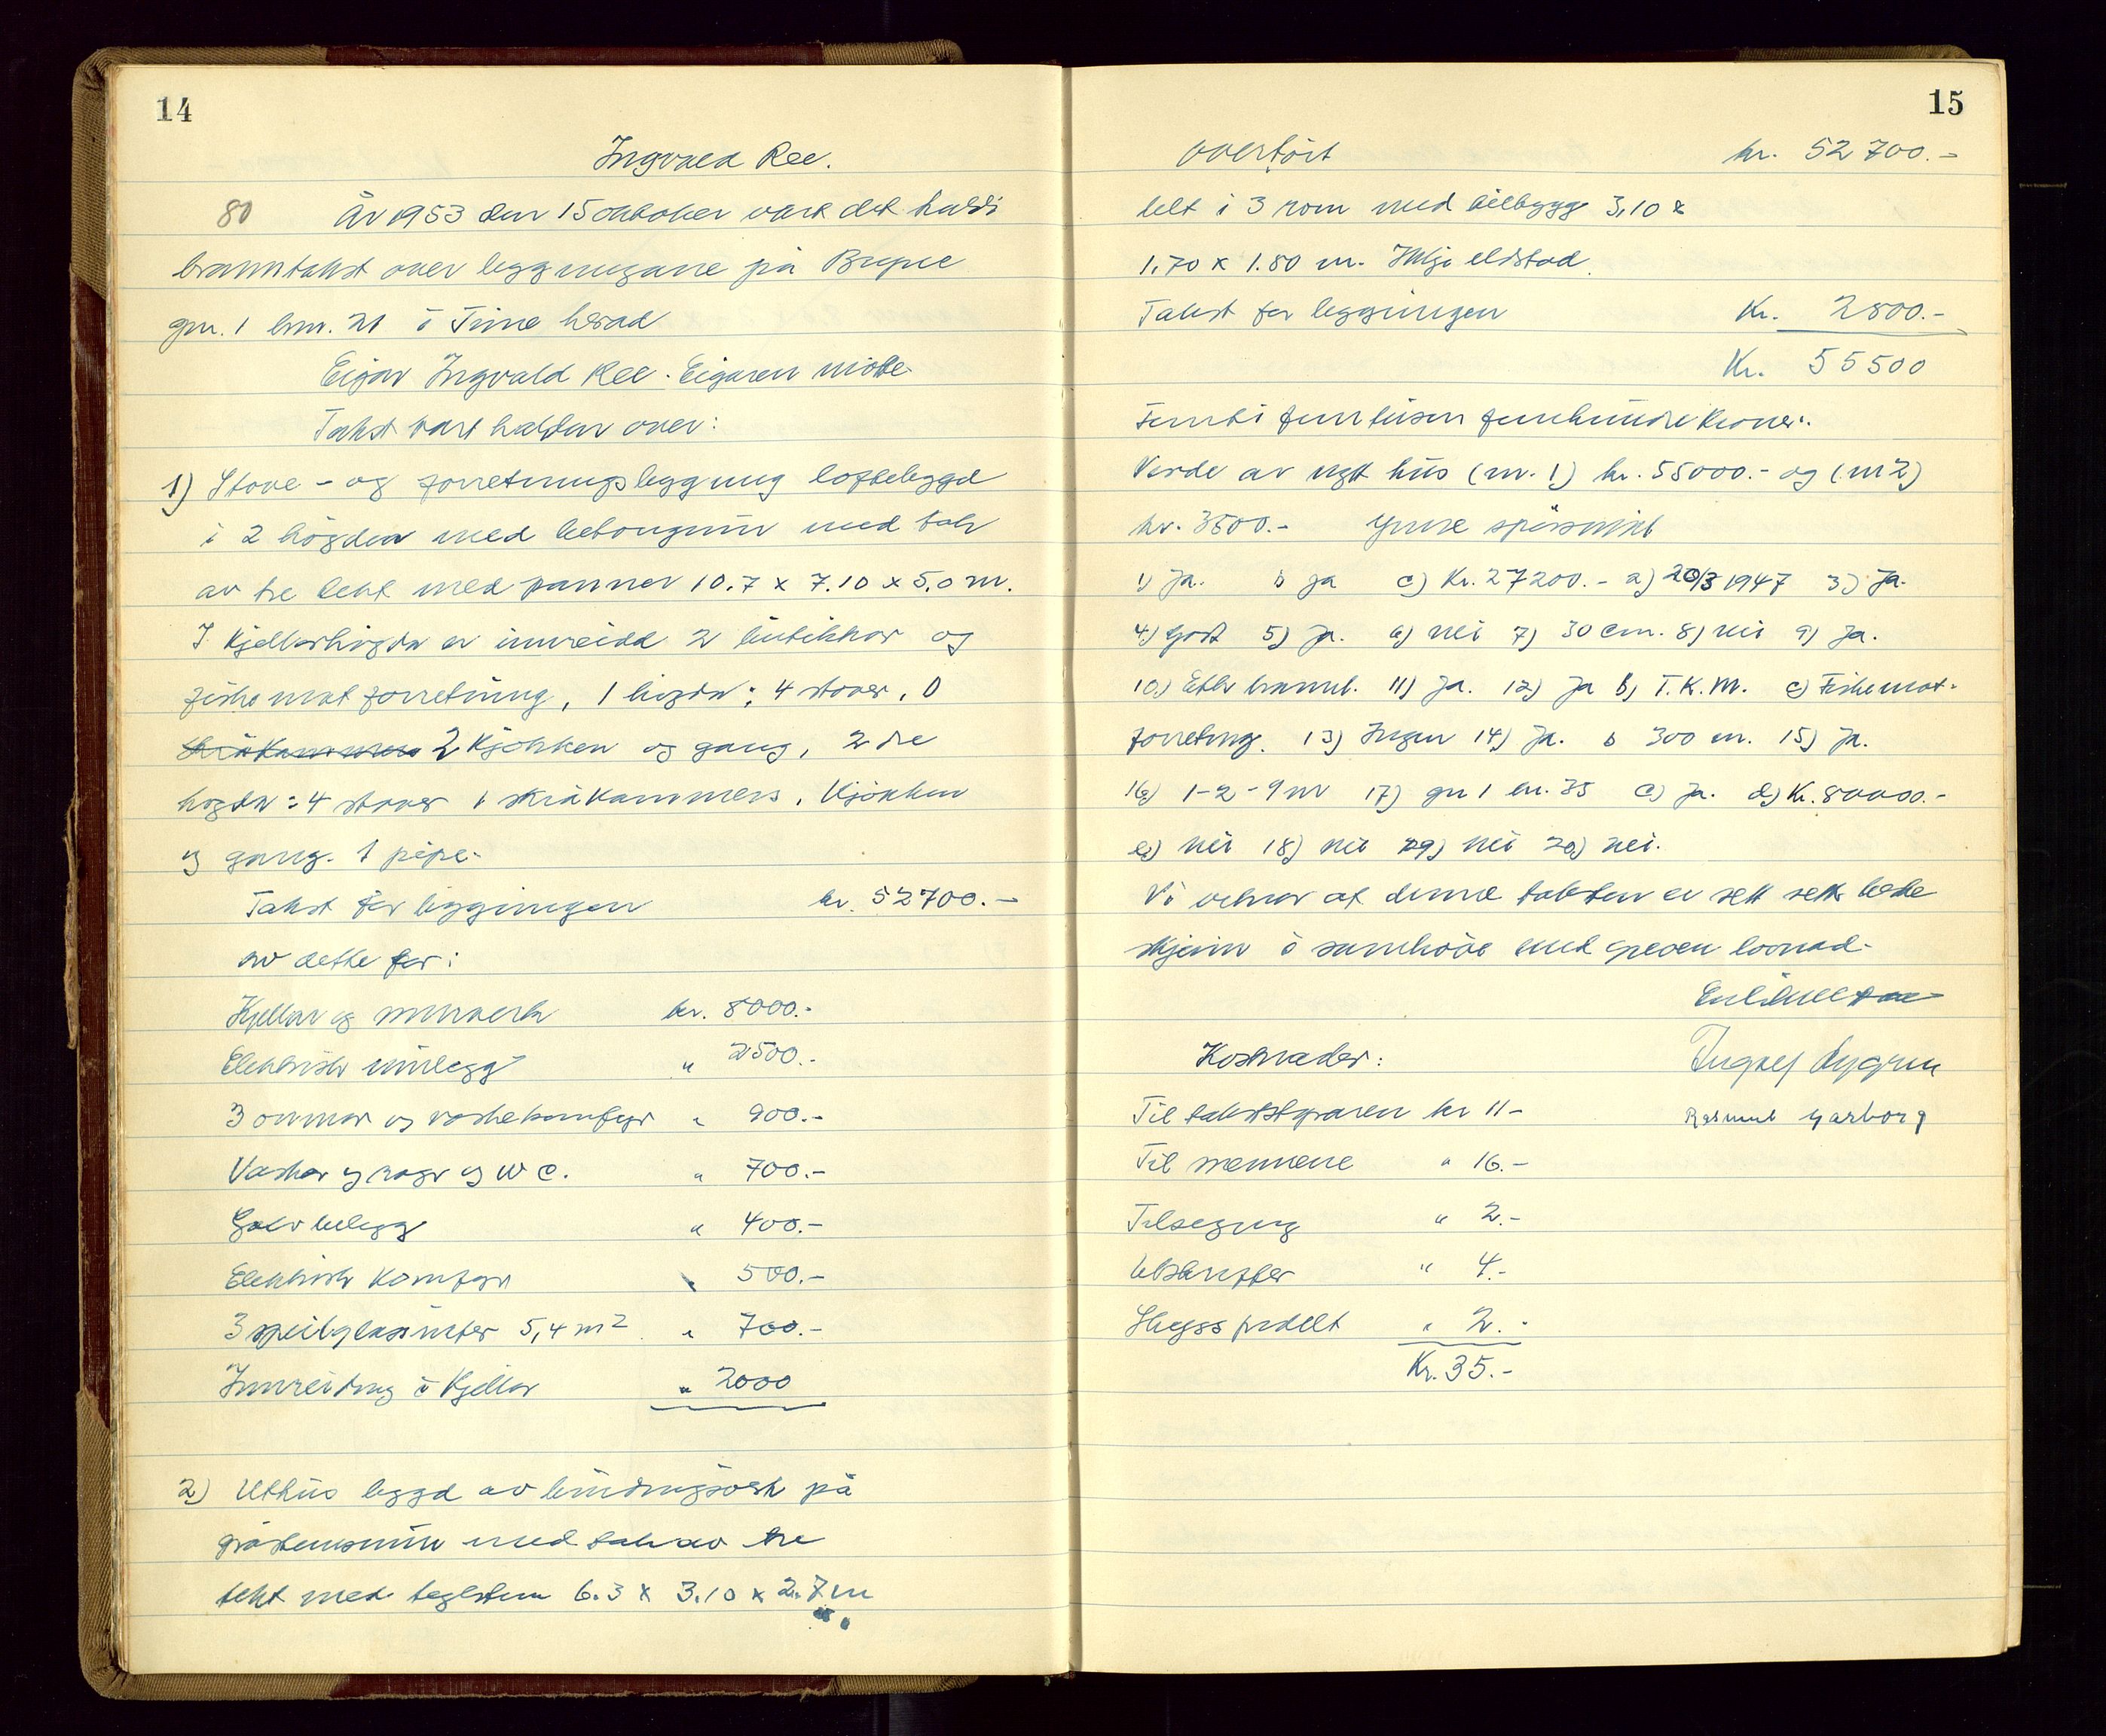 14
Ingvald Ree.
80 År 1953 den 15 oktober vart det haldi
branntakst over byggningane på Bryne
gnr. 1 bnr. 21 i Time herad
Eigar Ingvald Ree. Eigaren møtte
Takst vart halden over:
1) Stove- og forretningsbygging loftebygd
i 2 högder med betongmur med tak
av tre tekt med panner 10.7 x 7.10 x 5,0 m.
I Kjellarhögda er innreidd 2 butikkar og
fiskematforretning, 1 högda: 4 stover, 0
skråkammers 2 Kjøkken og gang, 2 dre
högda: 4 stover 1 skråkammers, Kjøkken
og gang. 1 pipe.
Takst for byggningen kr. 52700.-
av dette for:
Kjellar og murverk kr. 8000.-
Elektrisk innlegg " 2500.-
3 omnar og vaskekomfyr " 900.-
Vasker og rogr og W C. " 700.-
Golvbelegg " 400.-
Elektrisk Komfyr " 500.-
3 speilglasruter 5,4 m2 " 700.-
Innreiding i Kjellar " 2000
2) Uthus bygd av bindingsverk på
gråsteinsmur med tak av tre
tekt med teglstein 6.3 x 3.10 x 2.7 m
15
overført kr. 52 700.-
delt i 3 rom med tilbygg 3,10 x
1.70 x 1.80 m. Ikkje eldstad.
Takst for byggningen Kr. 2800.-
Kr. 55500
Femti fem tusen femhundre kroner.
Verde av nytt hus (nr. 1) kr. 55000.- og (nr 2)
kr. 3500.- Ymse spørsmål
1) Ja. b ja c) Kr. 27200.- 2) 20/3 1947 3) Ja.
4) Godt 5) Ja. 6) Nei 7) 30 cm. 8) Nei 9) Ja.
10) Etter brannl. 11) Ja. 12) Ja b) T.K.M. c) Fiskemat-
forretning. 13) Ingen 14) Ja. b 300 m. 15) Ja.
16) 1-2-9 m 17) gn 1 bn. 35 c) Ja. d) Kr. 80000.-
e) Nei 18) Nei 19) Nei 20) Nei.
Vi vitnar at denne taksten er sett etter beste
skjønn i samhøve med greven lovnad.
Kostnader: Ingolf Lygren
Til takststyraren kr 11- Rasmus Garborg
Til mennene " 16.-
Tilseging " 2.-
Utskrifter " 4.-
Skyss fridelt " 2.-
Kr. 35.-